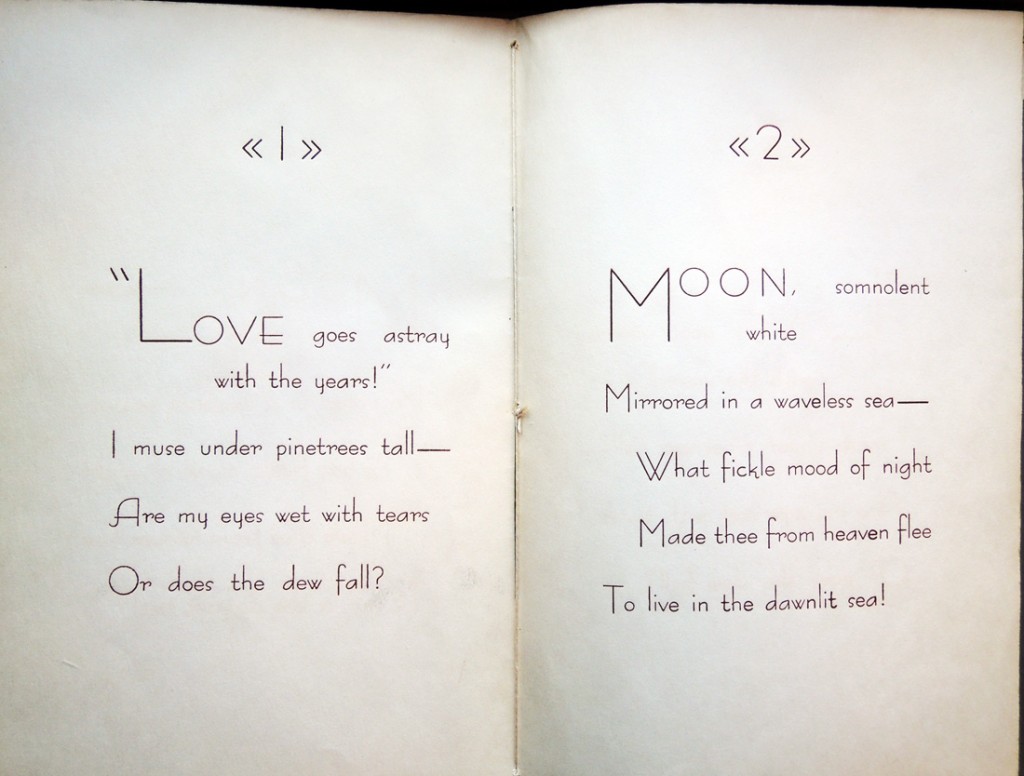 « 1 »
"LOVE goes astray
with the years!"
I muse under pinetrees tall—
Are my eyes wet with tears
Or does the dew fall?
« 2 »
MOON, somnolent
white
Mirrored in a waveless sea—
What fickle mood of night
Made thee from heaven flee
To live in the dawnlit sea!